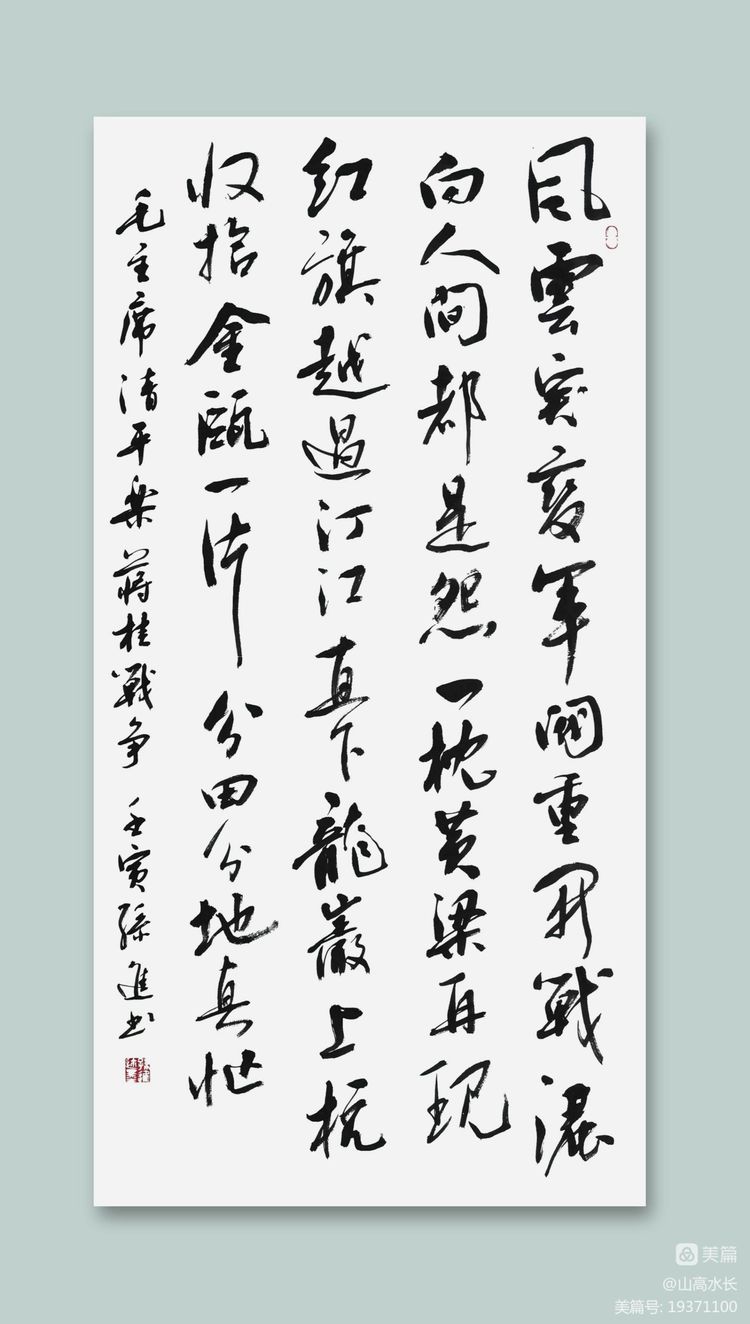 風雲突變軍閥重開戰灑
向人間都是怨一枕黄梁再現
紅旗越過汀江直下龍巖上杭
收拾金甌一片分田分地真忙
毛主席清平樂蔣桂戰争 壬寅孫進書
美篇
@山高水长
美篇号: 19371100